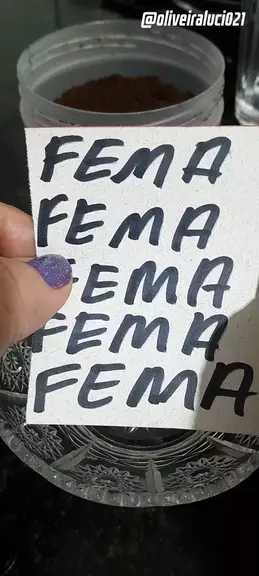 @oliveiraluci021
FEMA
FEMA
FEMA
FEMA
FEMA